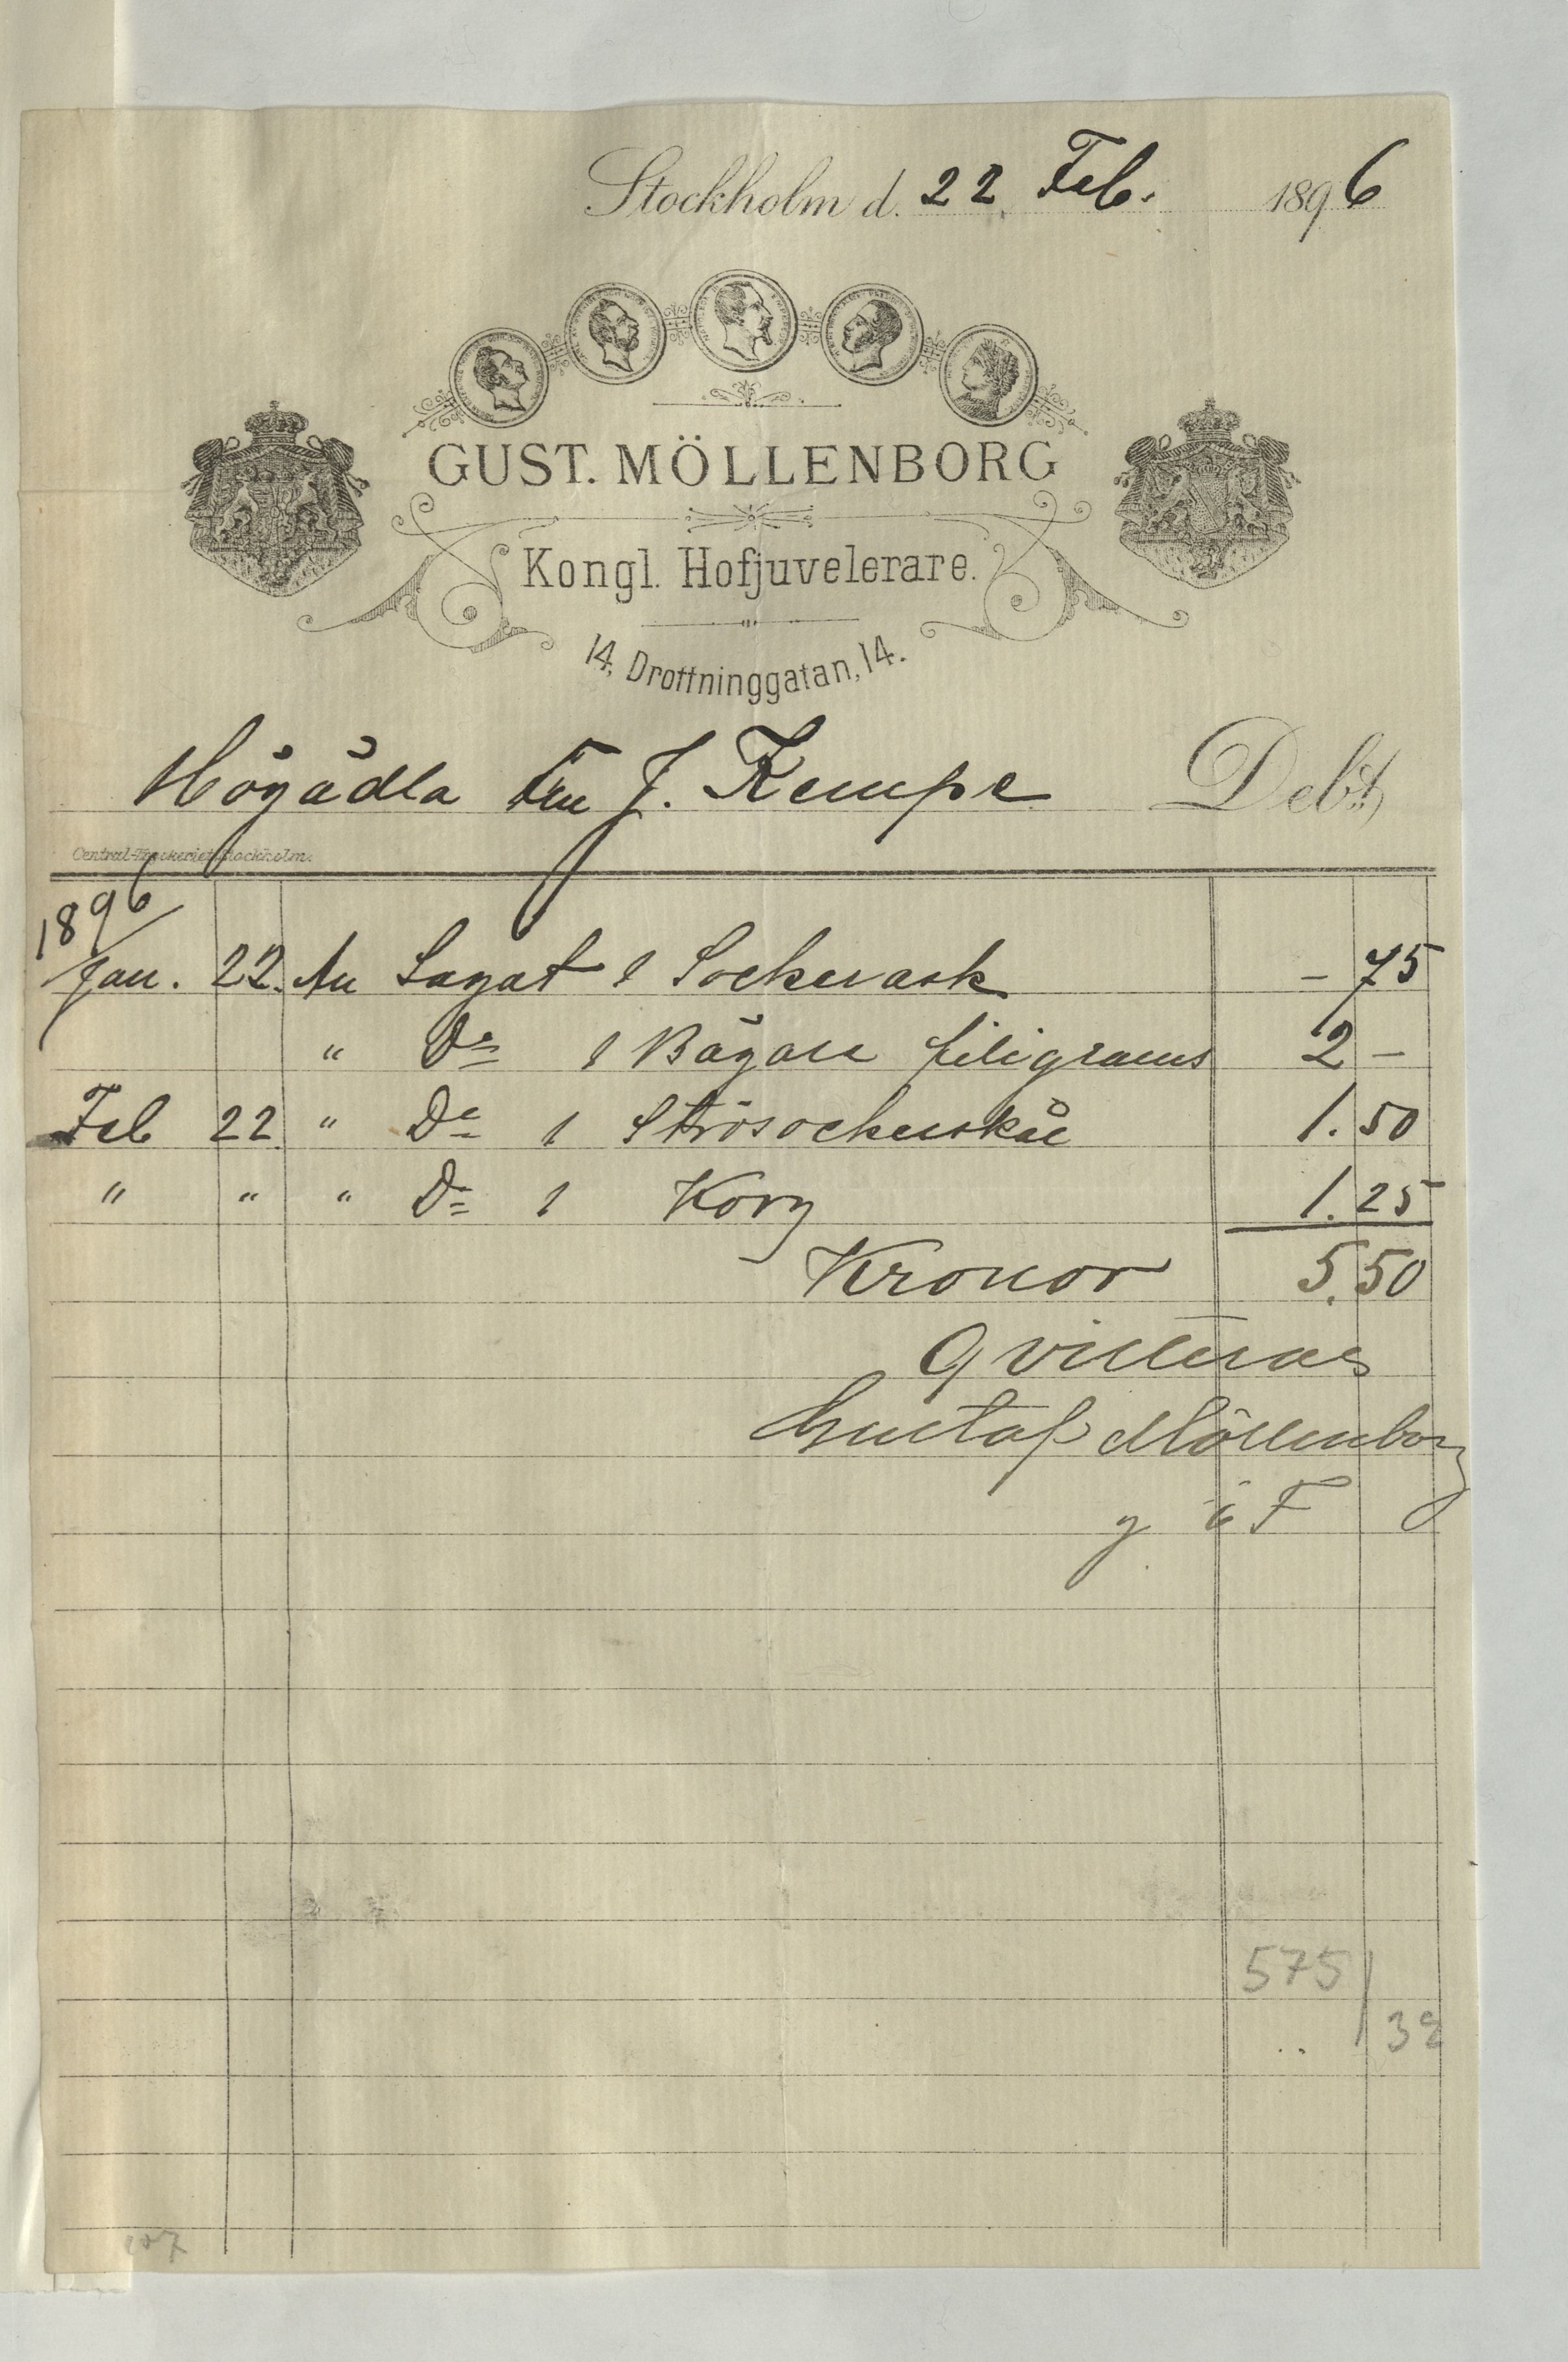 Stockholm d. 22 Feb. 1896
GUST. MÖLLENBORG
Kongl. Hofjuvelerare.
14, Drottninggatan, 14.
Högädla Fru J. Kempe Debet,
Central-Tryckeriet, Stockholm.
1896
Jan. 22. An Lagat 1 Sockerask - 75
" Do 1 Bägare filigrams 2 -
Feb 22 " Do 1 Strösockerskål 1.50
" " " Do 1 Korg 1.25
Kronor 5.50
Qvitteras
Gustaf Möllenborg
575
32